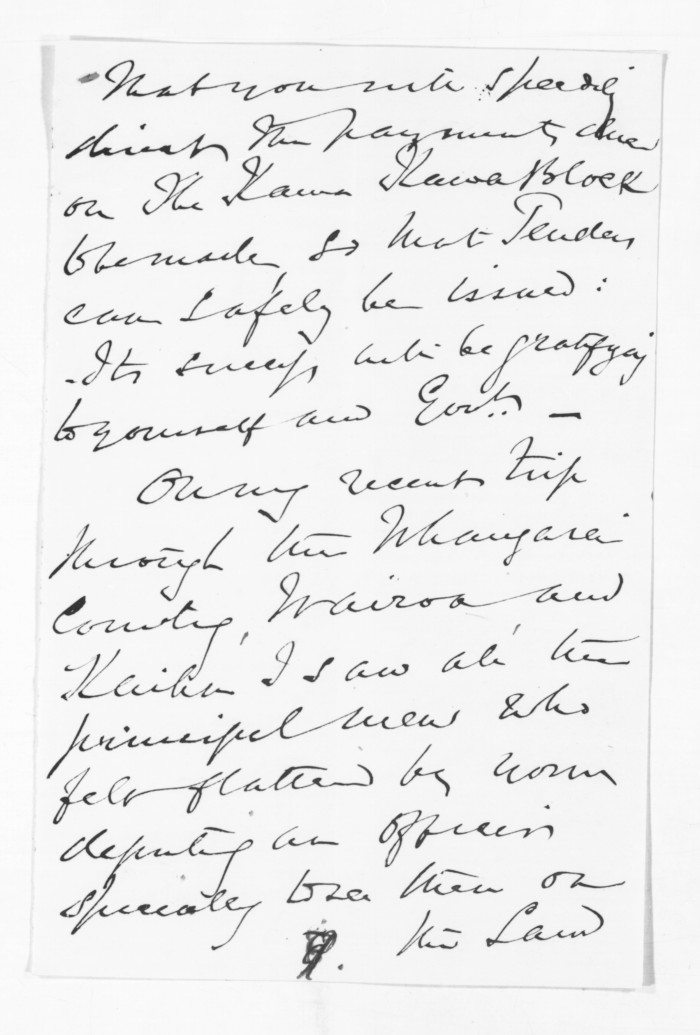 that you will speedily
direct the payments due
on the Kawa Kawa Block
to be made, so that Tenders
can safely be issued:
- Its success will be gratifying
to yourself and Govt. —
On my recent trip
through the Whangarei
County, Wairoa and
Kaihu I saw all the
principal men who
felt flattered by your
deputing an officer
specially to see them on
the Land